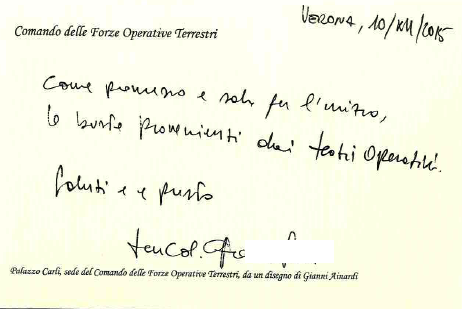 VERONA, 10/XII/2015
Comando delle Forze Operative Terrestri
Come promesso e solo per l'inizio,
le buste provenienti dai teatri Operativi.
Saluti e a presto
Ten Col.
Palazzo Carli, sede del Comando delle Forze Operative Terrestri, da un disegno di Gianni Ainardi